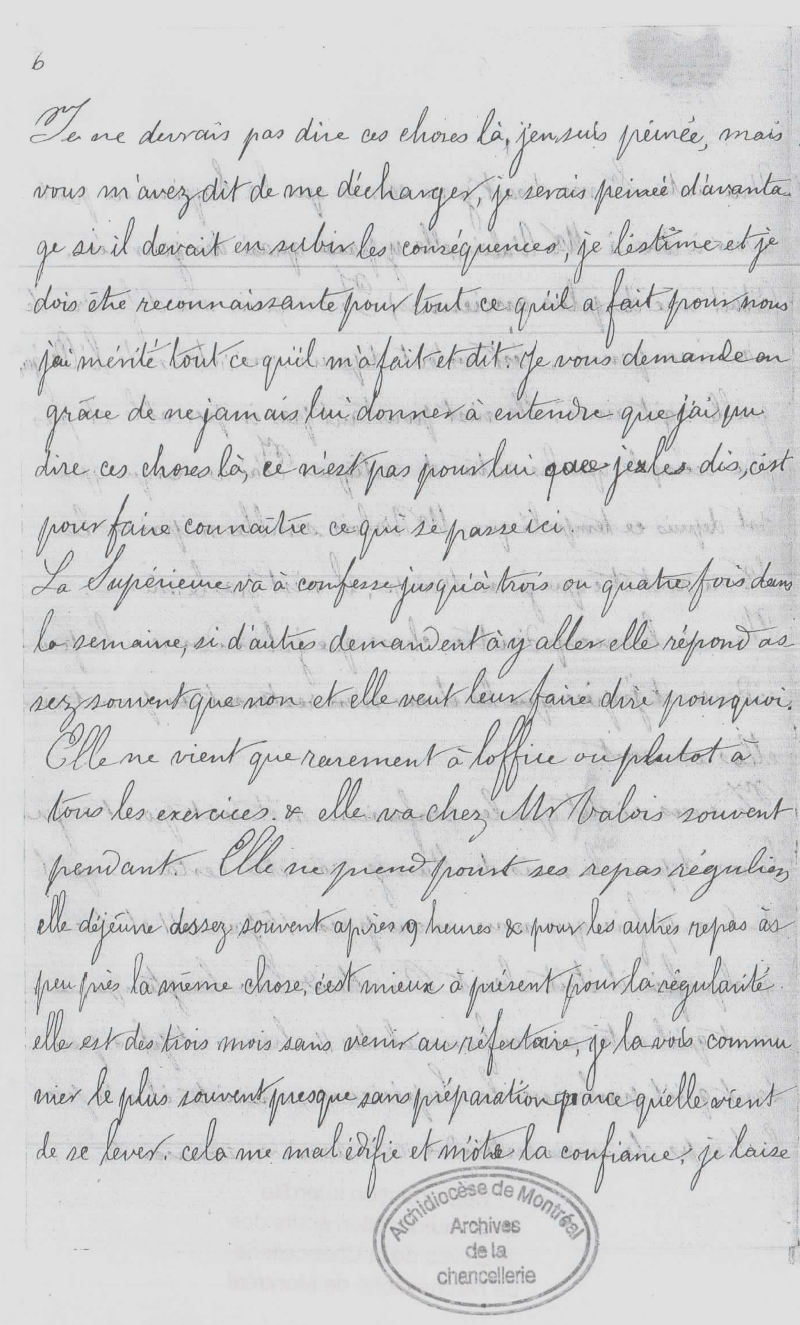 6
Je ne devrais pas dire ces choses là, j'en suis péinée, mais
vous m'avez dit de me décharger, je serais peinée d'avanta
ge si il devait en subir les conséquences, je l'estime et je
dois être reconnaissante pour tout ce qu'il a fait pour nous
j'ai mérité tout ce qu'il m'a fait et dit. Je vous demande en
grâce de ne jamais lui donner à entendre que j'ai pu
dire ces choses là, ce n'est pas pour lui que je les dis, c'est
pour faire connaître ce qui se passe ici.
La Supérieure va à confesse jusqu'à trois ou quatre fois dans
la semaine, si d'autres demandent à y aller elle répond as
sez souvent que non et elle veut leur faire dire pourquoi.
Elle ne vient que rarement à l'office ou plutot à
tous les exercices. & elle va chez Mr Valois souvent
pendant. Elle ne prend point ses repas régulier
elle déjeûne assez souvent après 9 heures & pour les autres repas à
peu près la même chose, c'est mieux à présent pour la régularité
elle est des trois mois sans venir au réfectoire, je la vois commu
nier le plus souvent presque sans préparation parce qu'elle vient
de se lever. cela me mal édifie et m'ôte la confiance, je laise
Archidiocèse de Montréal
Archives
de la
chancellerie